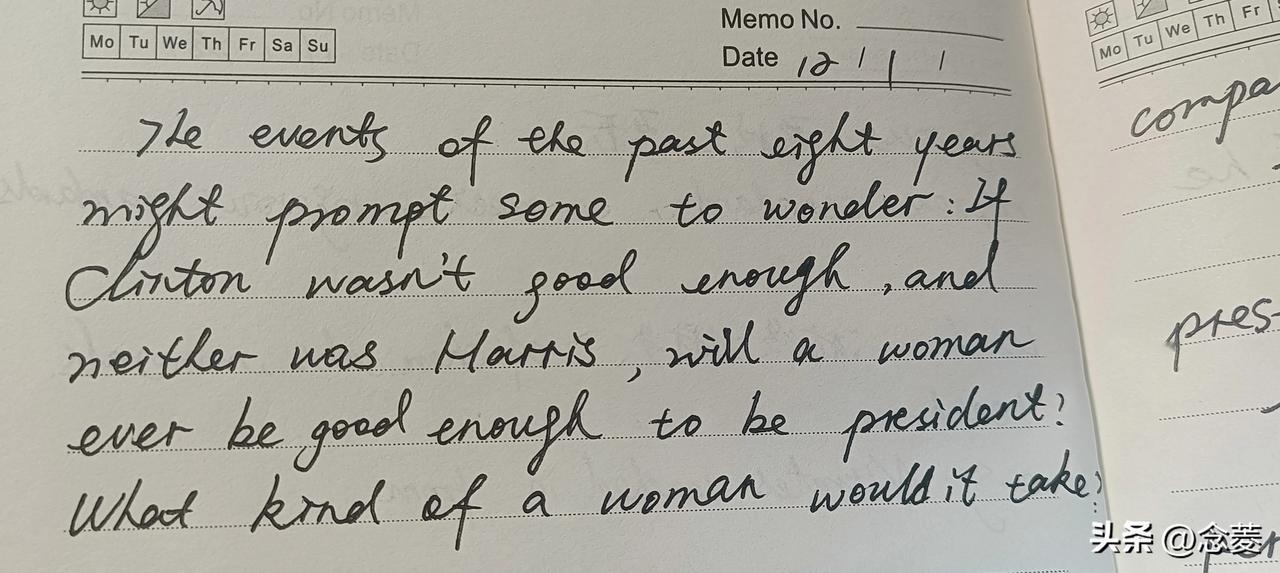 Memo No.
Mo Tu We Th Fr Sa Su
Date 12 / | /
Mo Tu We Th Fr
The events of the past eight years
might prompt some to wonder: If
Clinton wasn't good enough, and
neither was Harris, will a woman
ever be good enough to be president?
What kind of a woman would it take?
compa
he
pres-
头条 @念菱